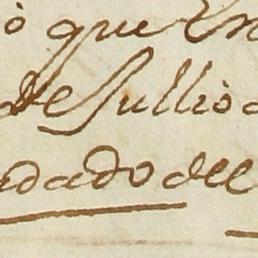 ò que en
de Jullio
dado del